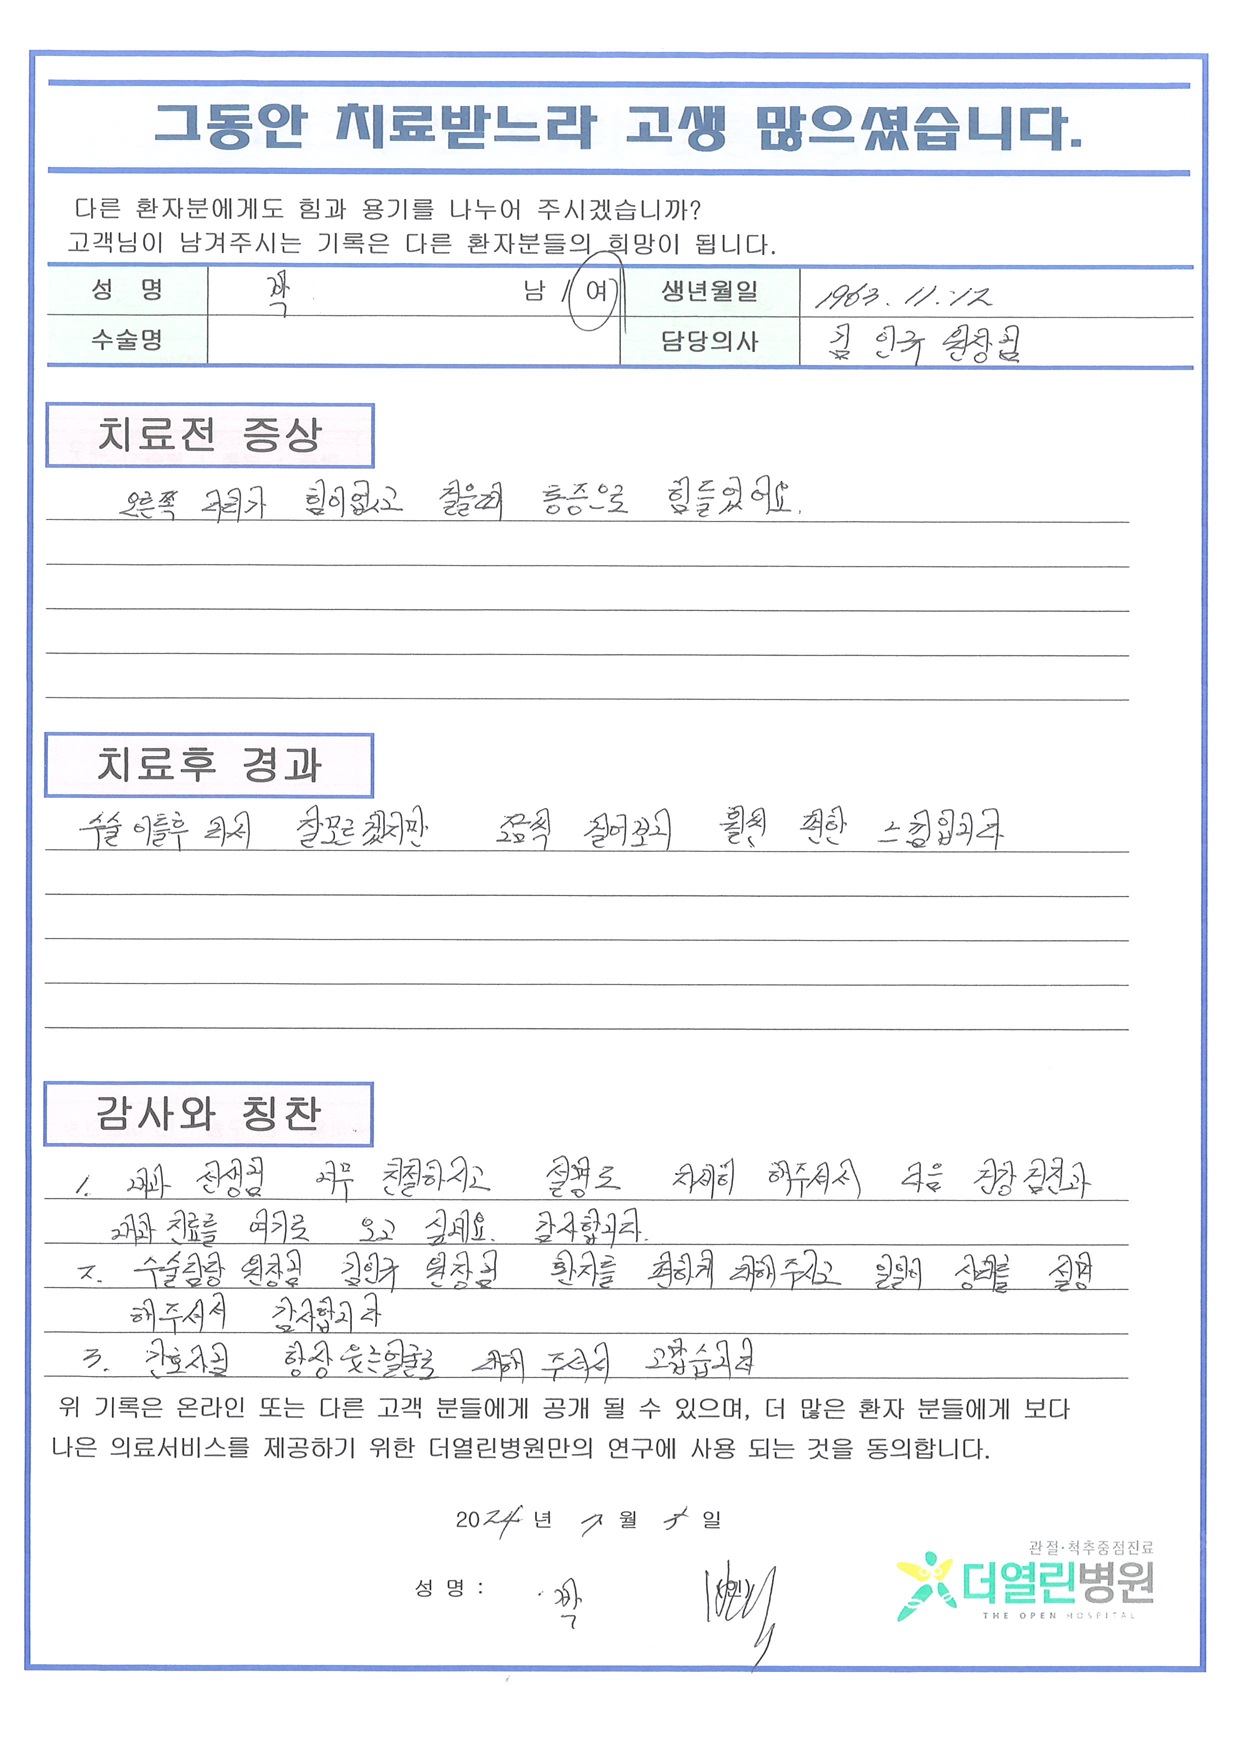 그동안 치료받느라 고생 많으셨습니다.
다른 환자분에게도 힘과 용기를 나누어 주시겠습니까?
고객님이 남겨주시는 기록은 다른 환자분들의 희망이 됩니다.
성 명 곽 남 / 여 생년월일 1963. 11. 12
수술명 담당의사 김인국 원장님
치료전 증상
오른쪽 다리가 힘이없고 걸을때 통증으로 힘들었어요.
치료후 경과
수술 이틀후 라서 잘모르겠지만 조금씩 걸어보니 훨씬 편한 느낌입니다
감사와 칭찬
1. 내과 선생님 너무 친절하시고 설명도 자세히 해주셔서 다음 건강검진과
내과 진료를 여기로 오고 싶네요. 감사합니다.
2. 수술담당 원장님 김인국 원장님 환자를 편하게 대해주시고 일일이 상태를 설명
해주셔서 감사합니다
3. 간호사님 항상 웃는얼굴로 대해 주셔서 고맙습니다
위 기록은 온라인 또는 다른 고객 분들에게 공개 될 수 있으며, 더 많은 환자 분들에게 보다
나은 의료서비스를 제공하기 위한 더열린병원만의 연구에 사용 되는 것을 동의합니다.
2024 년 7 월 5 일
성 명 : 곽
관절·척추중점진료
더열린병원
THE OPEN HOSPITAL